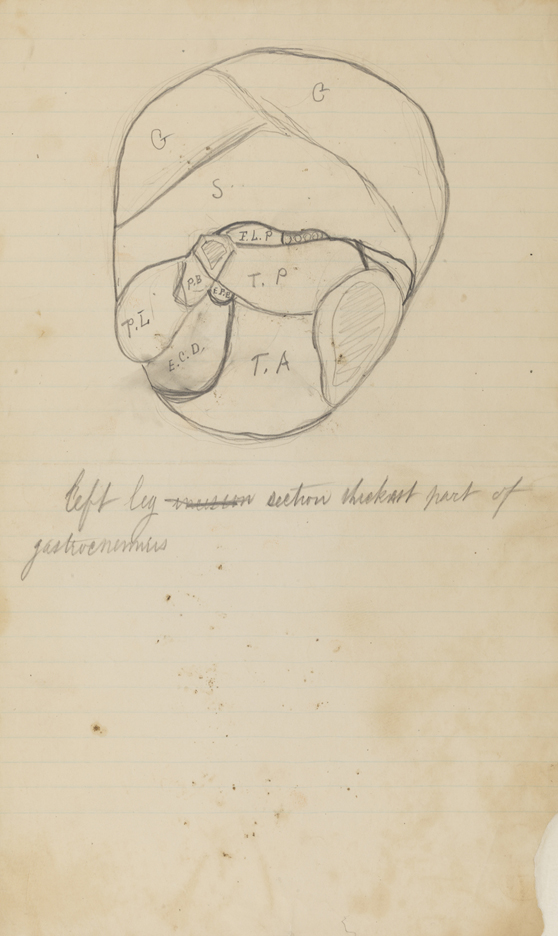 G
G
S
F.L.P
P.B
T.P
P.L
E.C.D.
T.A
left leg section thickast part of
gastrocnemius